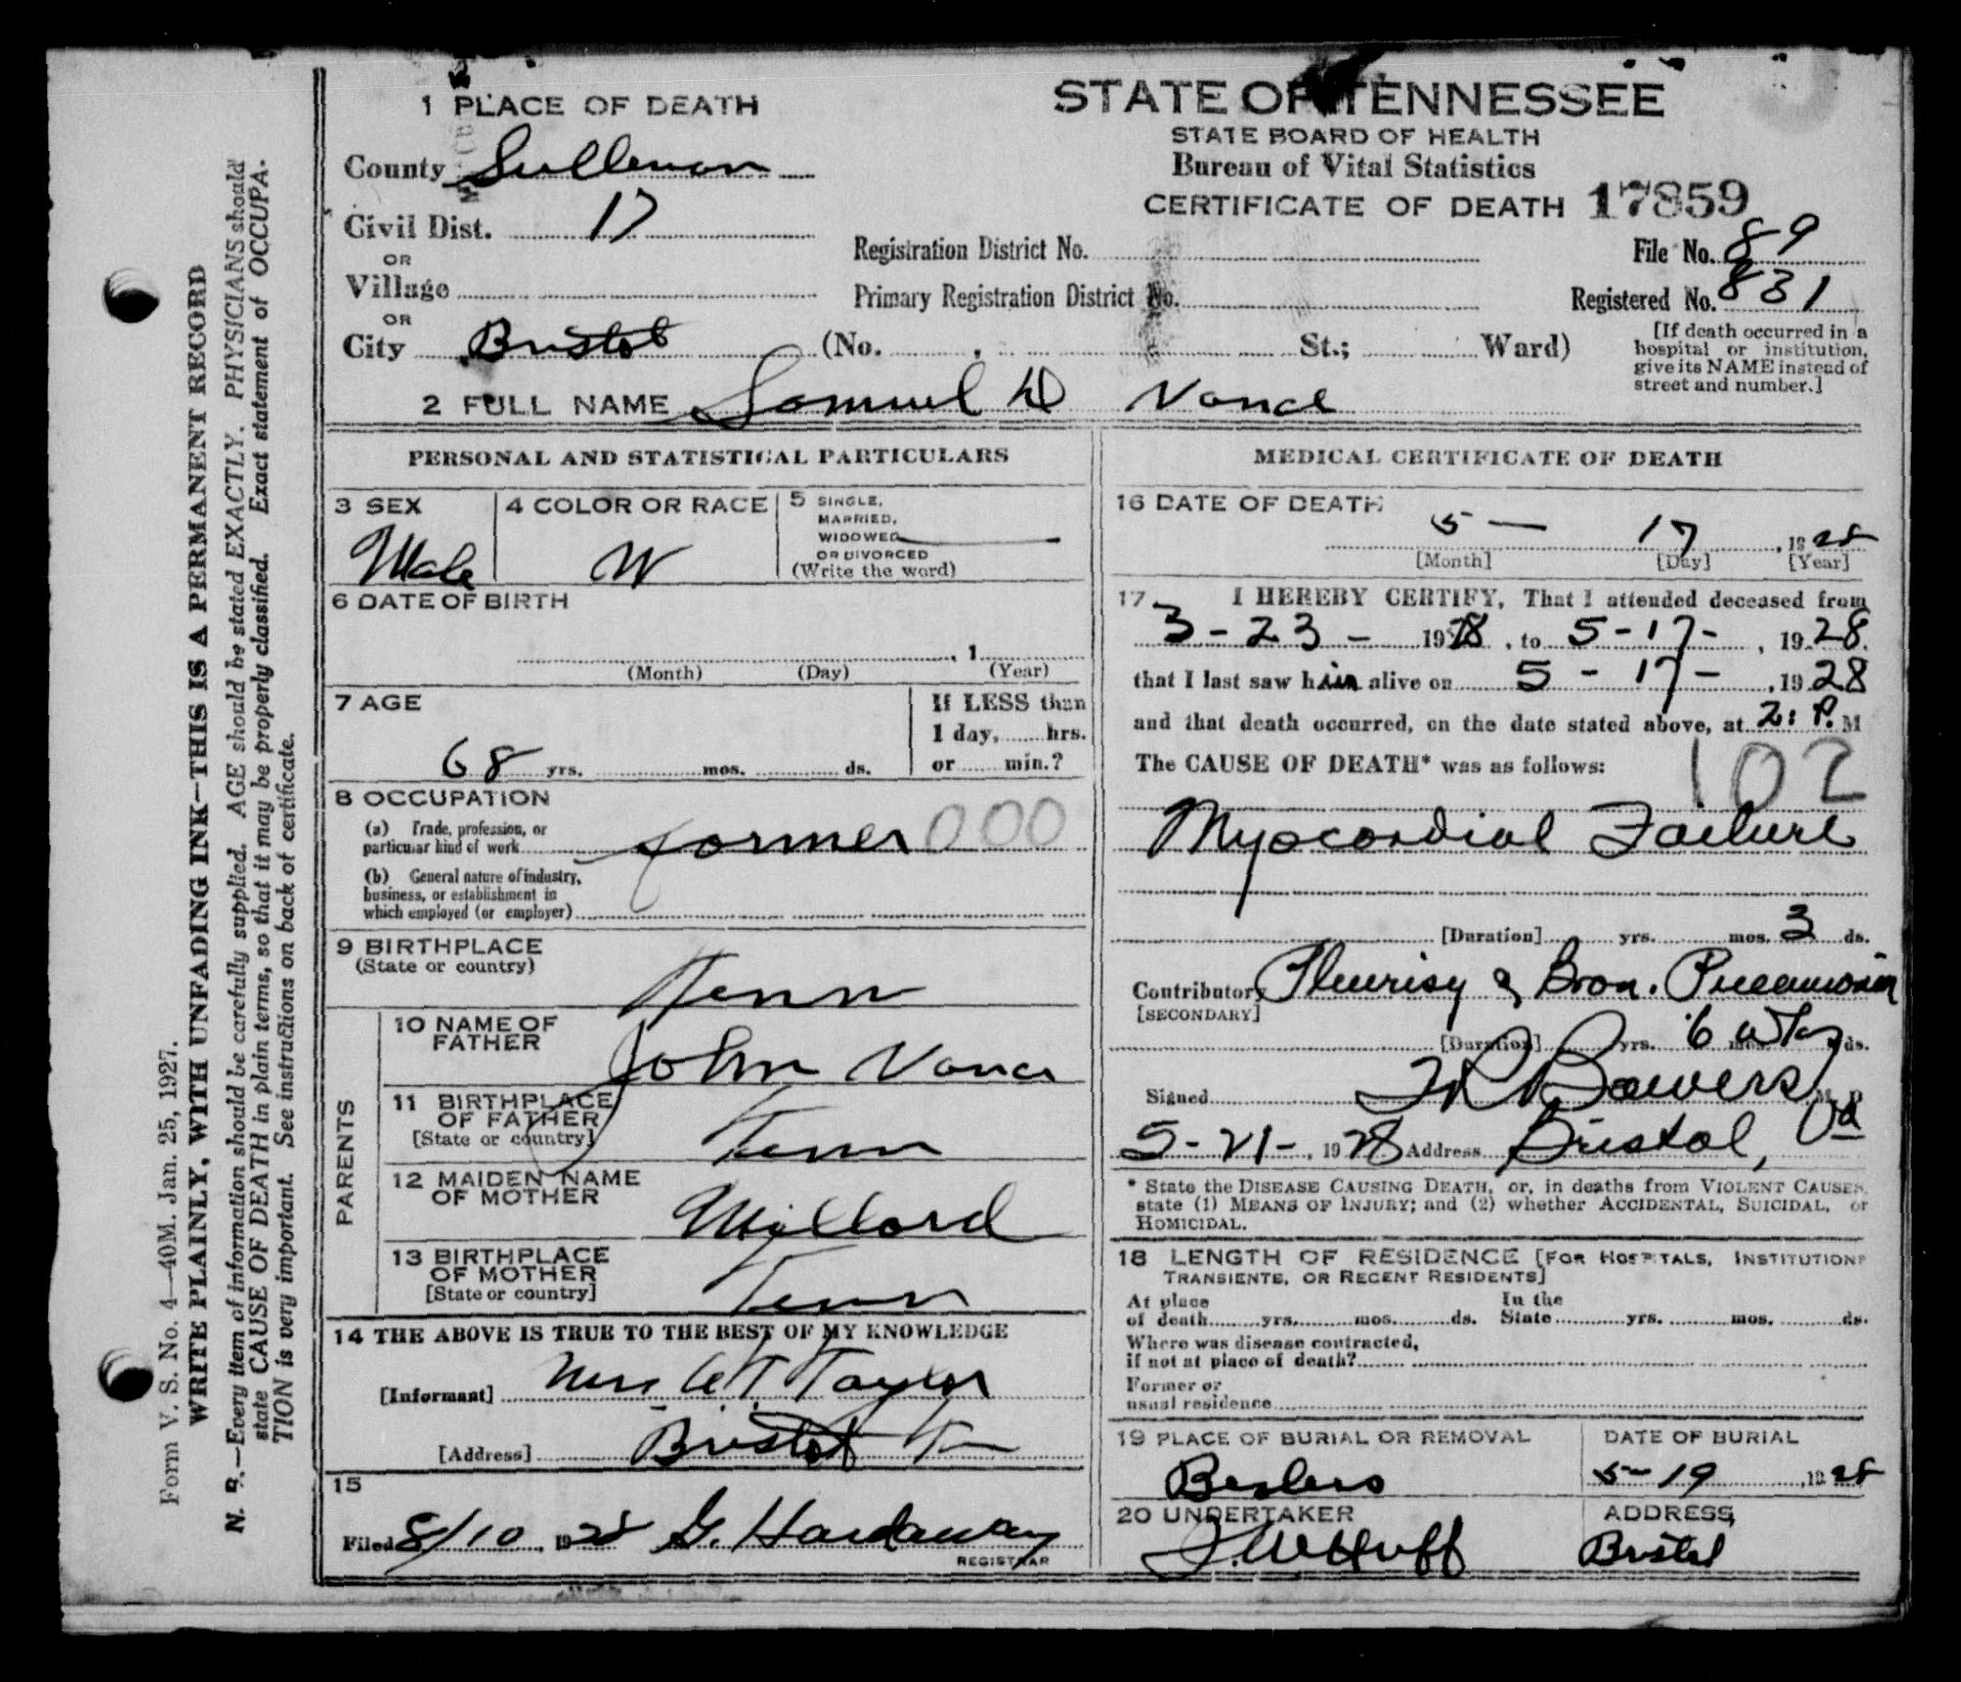 1 PLACE OF DEATH
County Sullivan
Civil Dist. 17
OR
Village
OR
City Bristol (No. , St.; Ward)
STATE OF TENNESSEE
STATE BOARD OF HEALTH
Bureau of Vital Statistics
CERTIFICATE OF DEATH 17859
Registration District No.
File No. 89
Primary Registration District No.
Registered No. 831
[If death occurred in a
hospital or institution,
give its NAME instead of
street and number.]
2 FULL NAME Samuel D Vance
PERSONAL AND STATISTICAL PARTICULARS
3 SEX
Male
4 COLOR OR RACE
W
5 SINGLE,
MARRIED,
WIDOWED
OR DIVORCED
(Write the word)
6 DATE OF BIRTH
, 1
(Month) (Day) (Year)
7 AGE
68 yrs. mos. ds.
If LESS than
1 day, hrs.
or min.?
8 OCCUPATION
(a) Trade, profession, or
particular kind of work farmer 000
(b) General nature of industry,
business, or establishment in
which employed (or employer)
9 BIRTHPLACE
(State or country)
Tenn
PARENTS
10 NAME OF
FATHER
John Vance
11 BIRTHPLACE
OF FATHER
[State or country]
Tenn
12 MAIDEN NAME
OF MOTHER
Millard
13 BIRTHPLACE
OF MOTHER
[State or country]
Tenn
14 THE ABOVE IS TRUE TO THE BEST OF MY KNOWLEDGE
[Informant] Mrs Taylor
[Address] Bristol Tn
15
Filed 8/10, 1928 G. Hardaway
REGISTRAR
MEDICAL CERTIFICATE OF DEATH
16 DATE OF DEATH
5 — 17, 1928
[Month] [Day] [Year]
17 I HEREBY CERTIFY, That I attended deceased from
3-23- 1928, to 5-17-, 1928.
that I last saw him alive on 5-17-, 1928
and that death occurred, on the date stated above, at 2: P. M
The CAUSE OF DEATH* was as follows:
102
Myocardial Failure
[Duration] yrs. mos. 3 ds.
Contributory Pleurisy & Bron. Pneumonia
[SECONDARY]
[Duration] yrs. 6 wks mos. ds.
Signed Bowers M. D.
5-21-, 1928 Address Bristol, Va
* State the DISEASE CAUSING DEATH, or, in deaths from VIOLENT CAUSES,
state (1) MEANS OF INJURY; and (2) whether ACCIDENTAL, SUICIDAL, or
HOMICIDAL.
18 LENGTH OF RESIDENCE [FOR HOSPITALS, INSTITUTIONS
TRANSIENTS, OR RECENT RESIDENTS]
At place
of death yrs. mos. ds.
In the
State yrs. mos. ds.
Where was disease contracted,
if not at place of death?
Former or
usual residence
19 PLACE OF BURIAL OR REMOVAL
Beelers
DATE OF BURIAL
5-19, 1928
20 UNDERTAKER
Huff
ADDRESS
Bristol
Form V. S. No. 4—40M. Jan. 25, 1927.
WRITE PLAINLY, WITH UNFADING INK—THIS IS A PERMANENT RECORD
N. B.—Every item of information should be carefully supplied. AGE should be stated EXACTLY. PHYSICIANS should
state CAUSE OF DEATH in plain terms, so that it may be properly classified. Exact statement of OCCUPA-
TION is very important. See instructions on back of certificate.